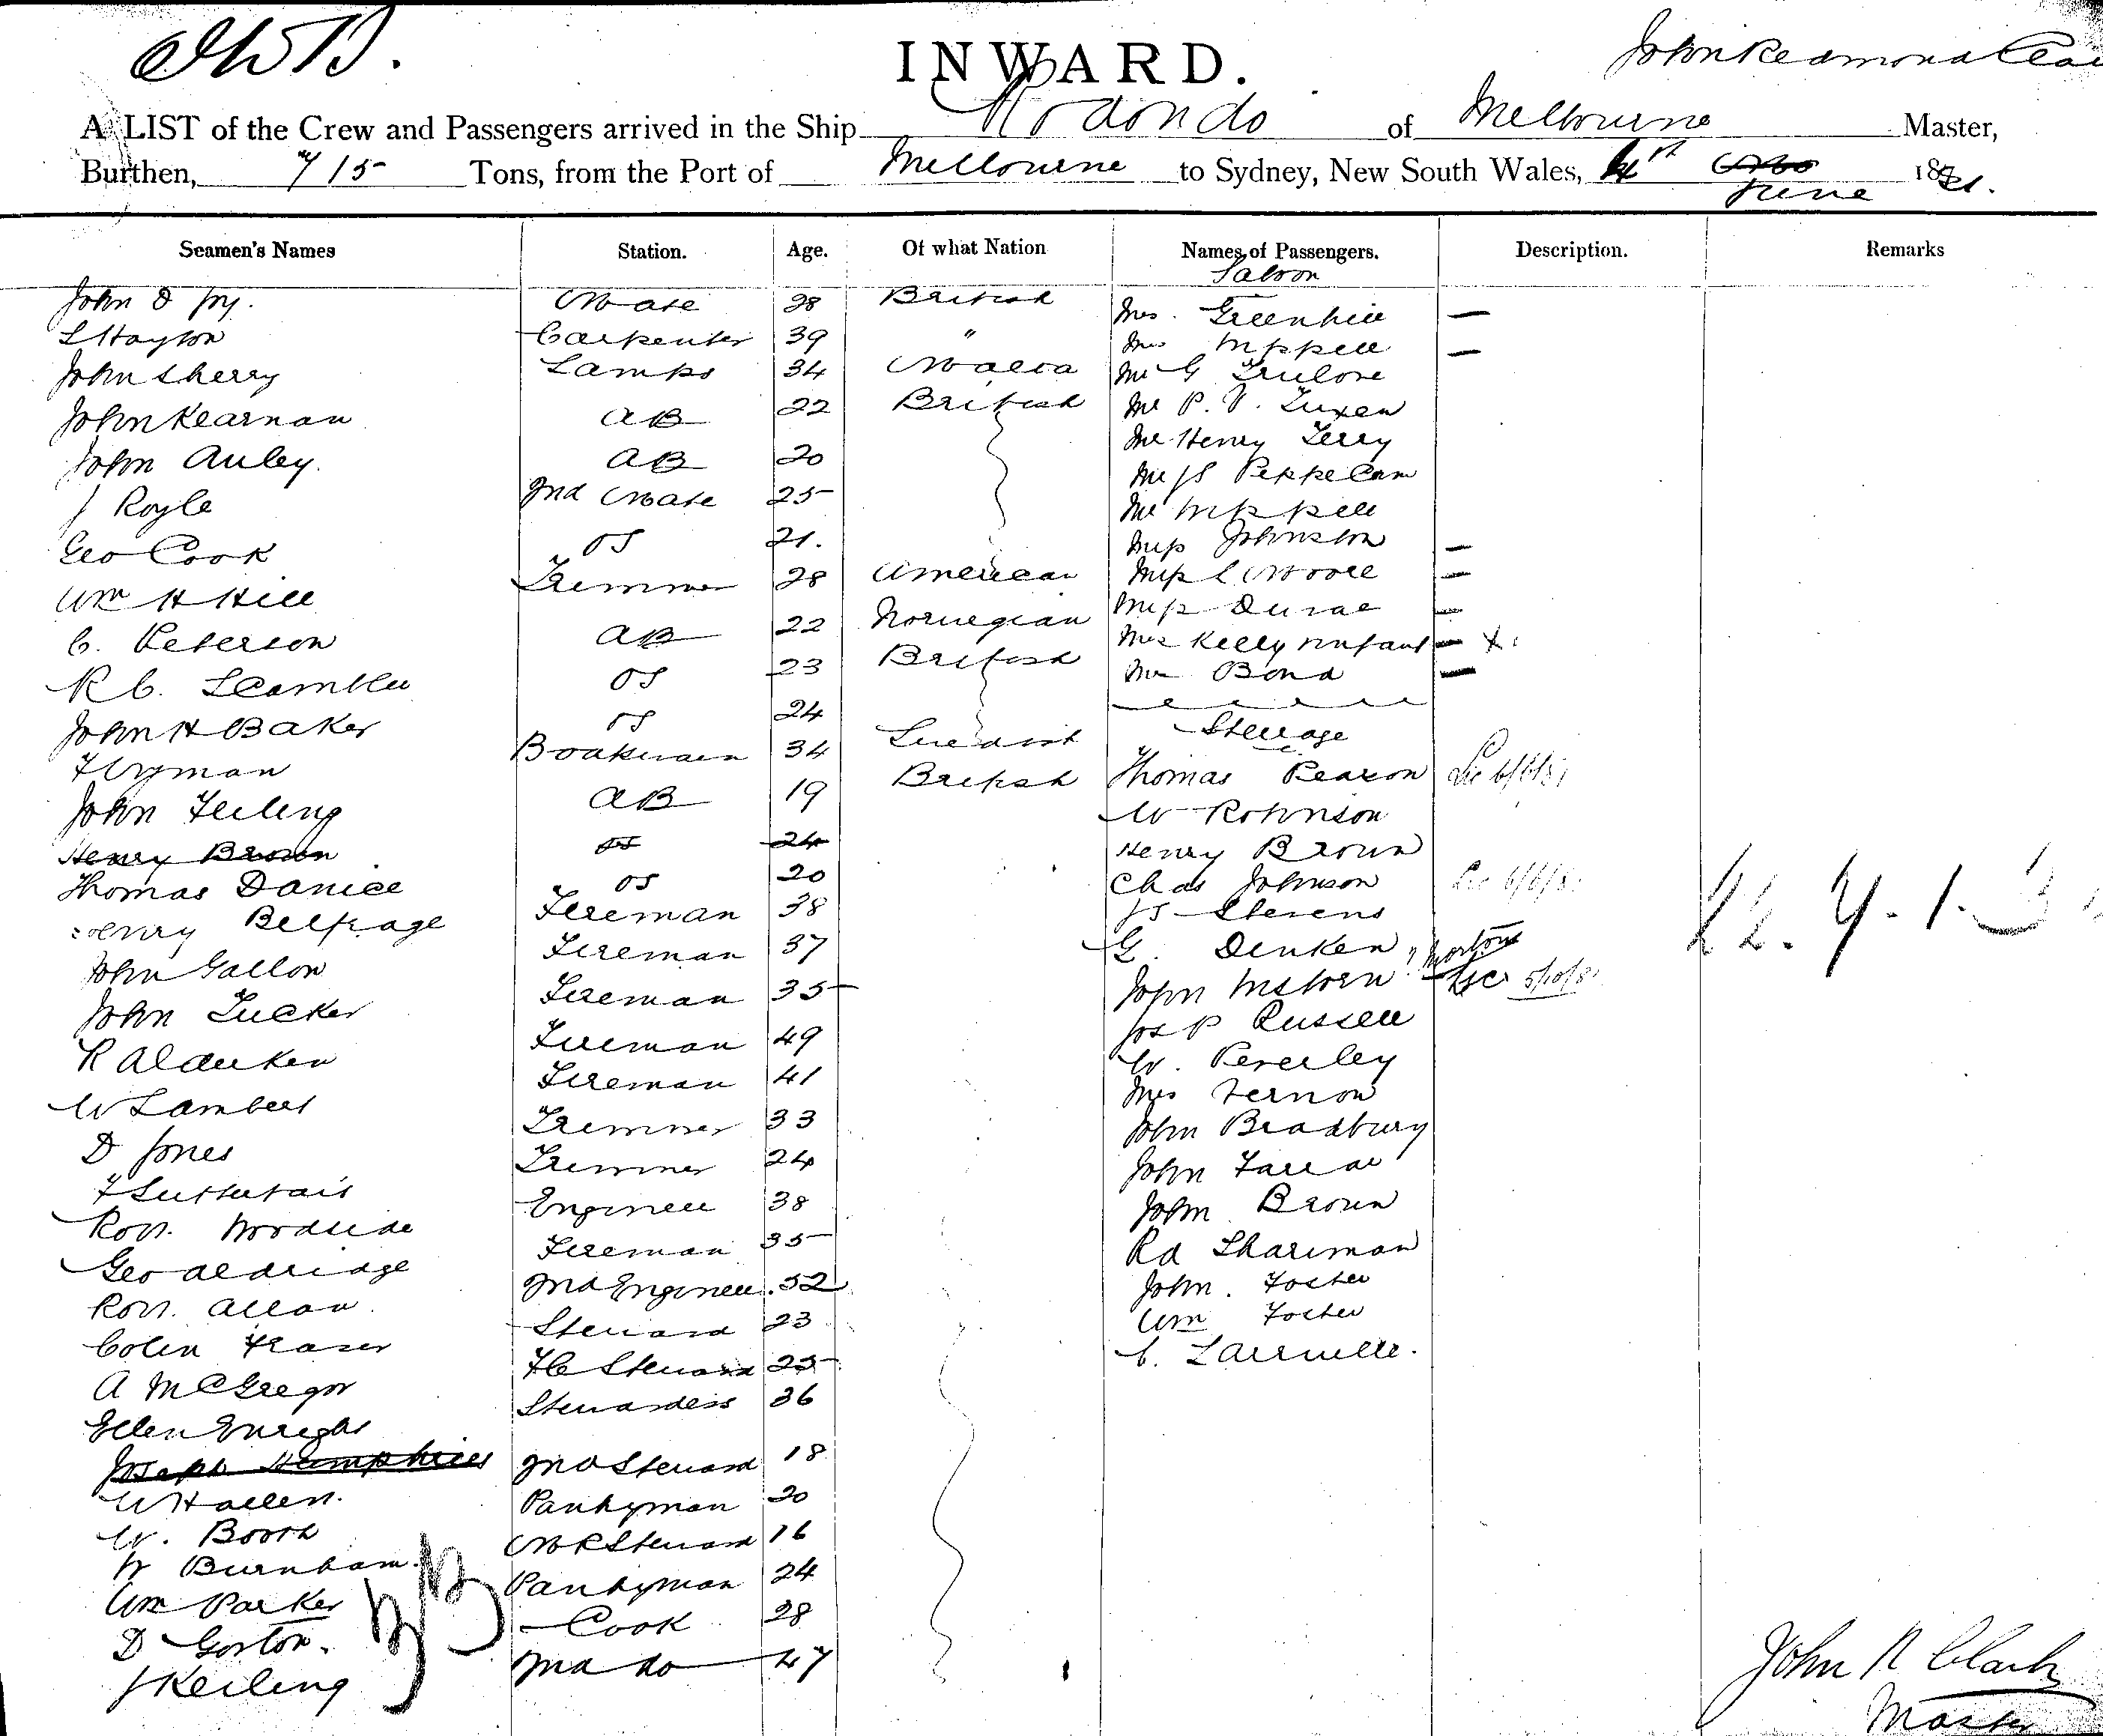 INWARD.
John Redmond Cla
A LIST of the Crew and Passengers arrived in the Ship Rodondo of Melbourne Master,
Burthen, 715 Tons, from the Port of Melbourne to Sydney, New South Wales, June 1881.
Seamen's Names Station. Age. Of what Nation Names of Passengers. Description. Remarks
Saloon
John Mate 38 British Mrs. Greenhill —
L Hayton Carpenter 39 " Mrs —
John Sherry Lamps 34 Malta Mr G Trulove
John Kearnan AB 22 British Mr P. V. Tuxen
John Auley. AB 20 Mr Henry Terry
J Royle 2nd Mate 25 Mr JS
Geo Cook OS 21. Mr
Wm H Hill Trimmer 28 American Miss Johnston —
C. Peterson AB 22 Norwegian Miss L Moore —
R C. Scambler OS 23 British Miss —
John H Baker OS 24 Mrs Kelly Infant — X
Boatswain 34 Swedish Mrs Bond —
Steerage
John AB 19 British Thomas Pearson 6/6/81
Henry Brown OS 24 W Robinson
Thomas Daniel OS 20 Henry Brown
Henry Belfrage Fireman 38 Chas Johnson 6/6/81
John Gallon Fireman 37 Js Stevens
John Tucker Fireman 35 G. Denken
R Alderken Fireman 49 John 5/10/81
W Lambert Fireman 41 Jos P Russell
D Jones Trimmer 33 W. Peverley
Trimmer 24 Mrs Vernon
Robt. Woodside Engineer 38 John Bradbury
Geo Aldridge Fireman 35 John Farrar
Robt. Allan 2nd Engineer. 32 John Brown
Colin Fraser Steward 23 Rd Shariman
A McGregor FC Steward 25 John. Foster
Ellen Enright Stewardess 36 Wm Foster
Joseph Humphries 2nd Steward 18 C.
W Hallen. Pantryman 20
W. Booth MR Steward 16
W Burnham. Pantryman 24
Wm Parker Cook 28
D Gorton. 2nd do 47
J Keiling
John R Clark
Master